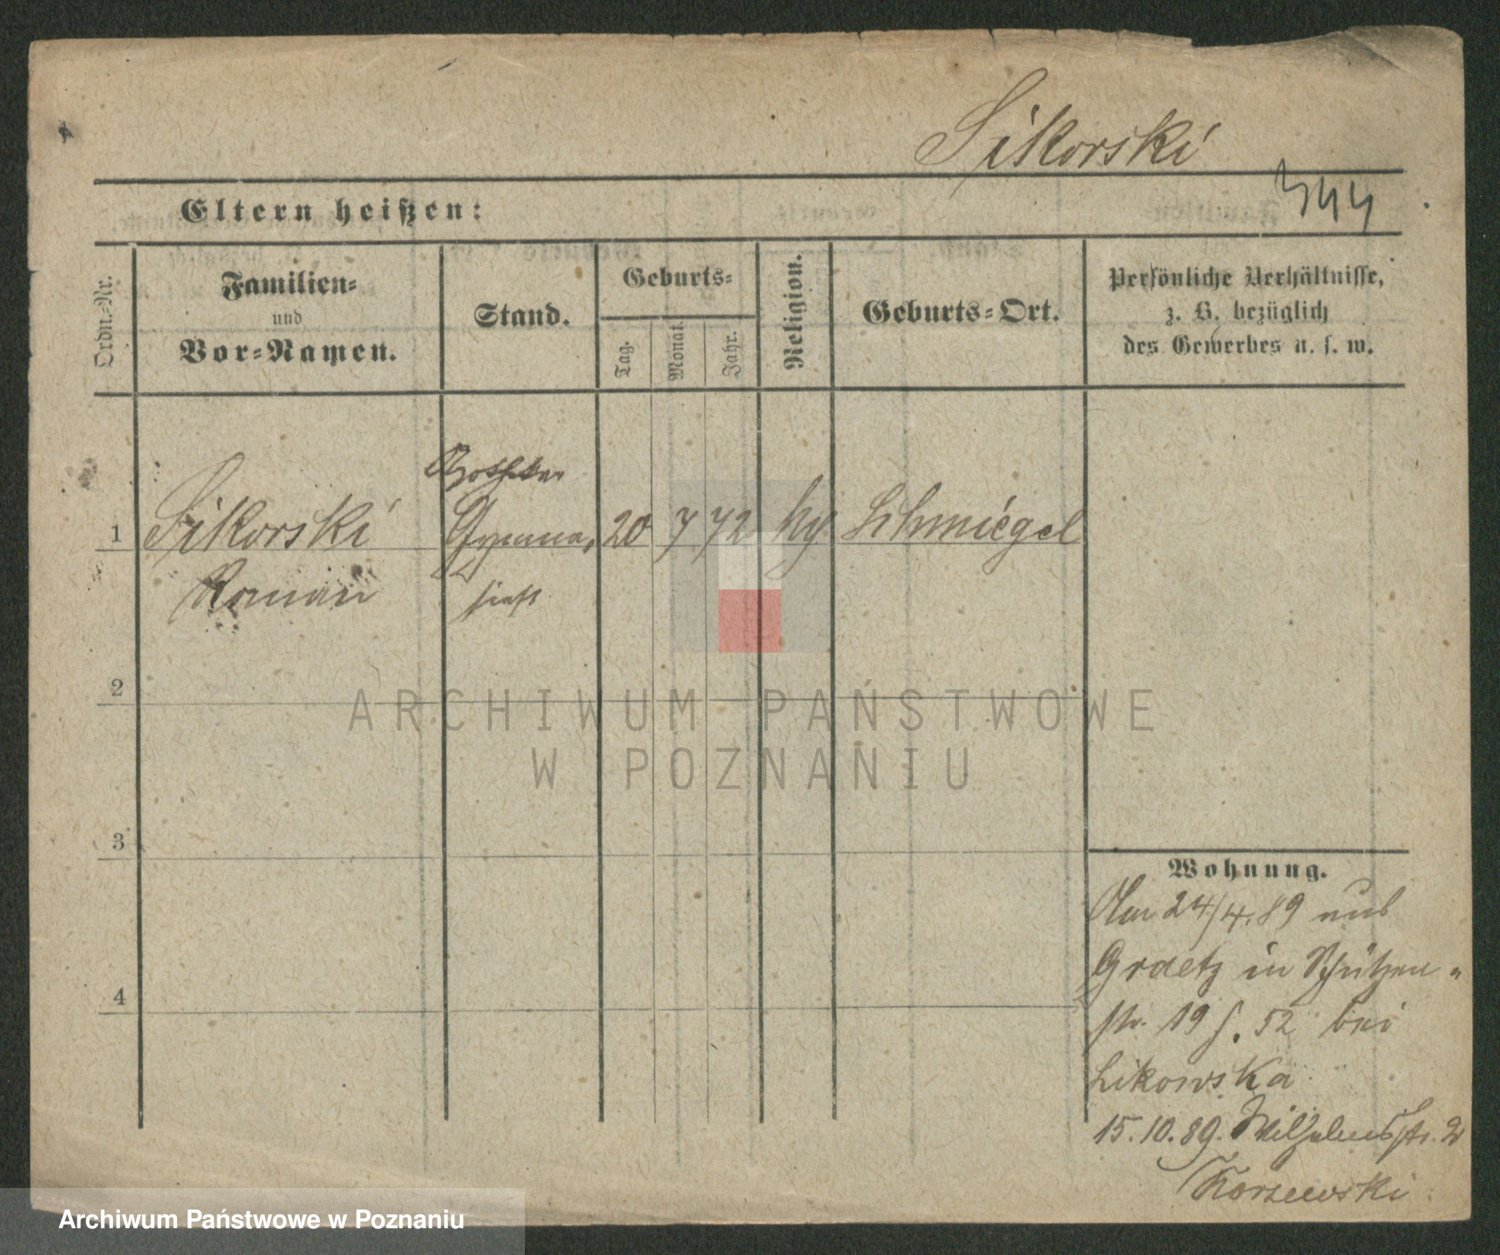 Sikorski
344
Eltern heißen:
Ordn.-Nr.
Familien-
und
Vor-Namen.
Stand.
Geburts-
Tag.
Monat.
Jahr.
Religion.
Geburts-Ort.
Persönliche Verhältnisse,
z. B. bezüglich
des Gewerbes u. s. w.
1
Sikorski
Roman
Gymna-
siast
20 7 72
Schmiegel
2
3
4
Wohnung.
Am 24/4.89 aus
Graetz in Schützen-
str. 19 52 bei
Likowska
15.10.89. Wilhelmsstr. 2
Korzewski
ARCHIWUM PAŃSTWOWE
W POZNANIU
Archiwum Państwowe w Poznaniu